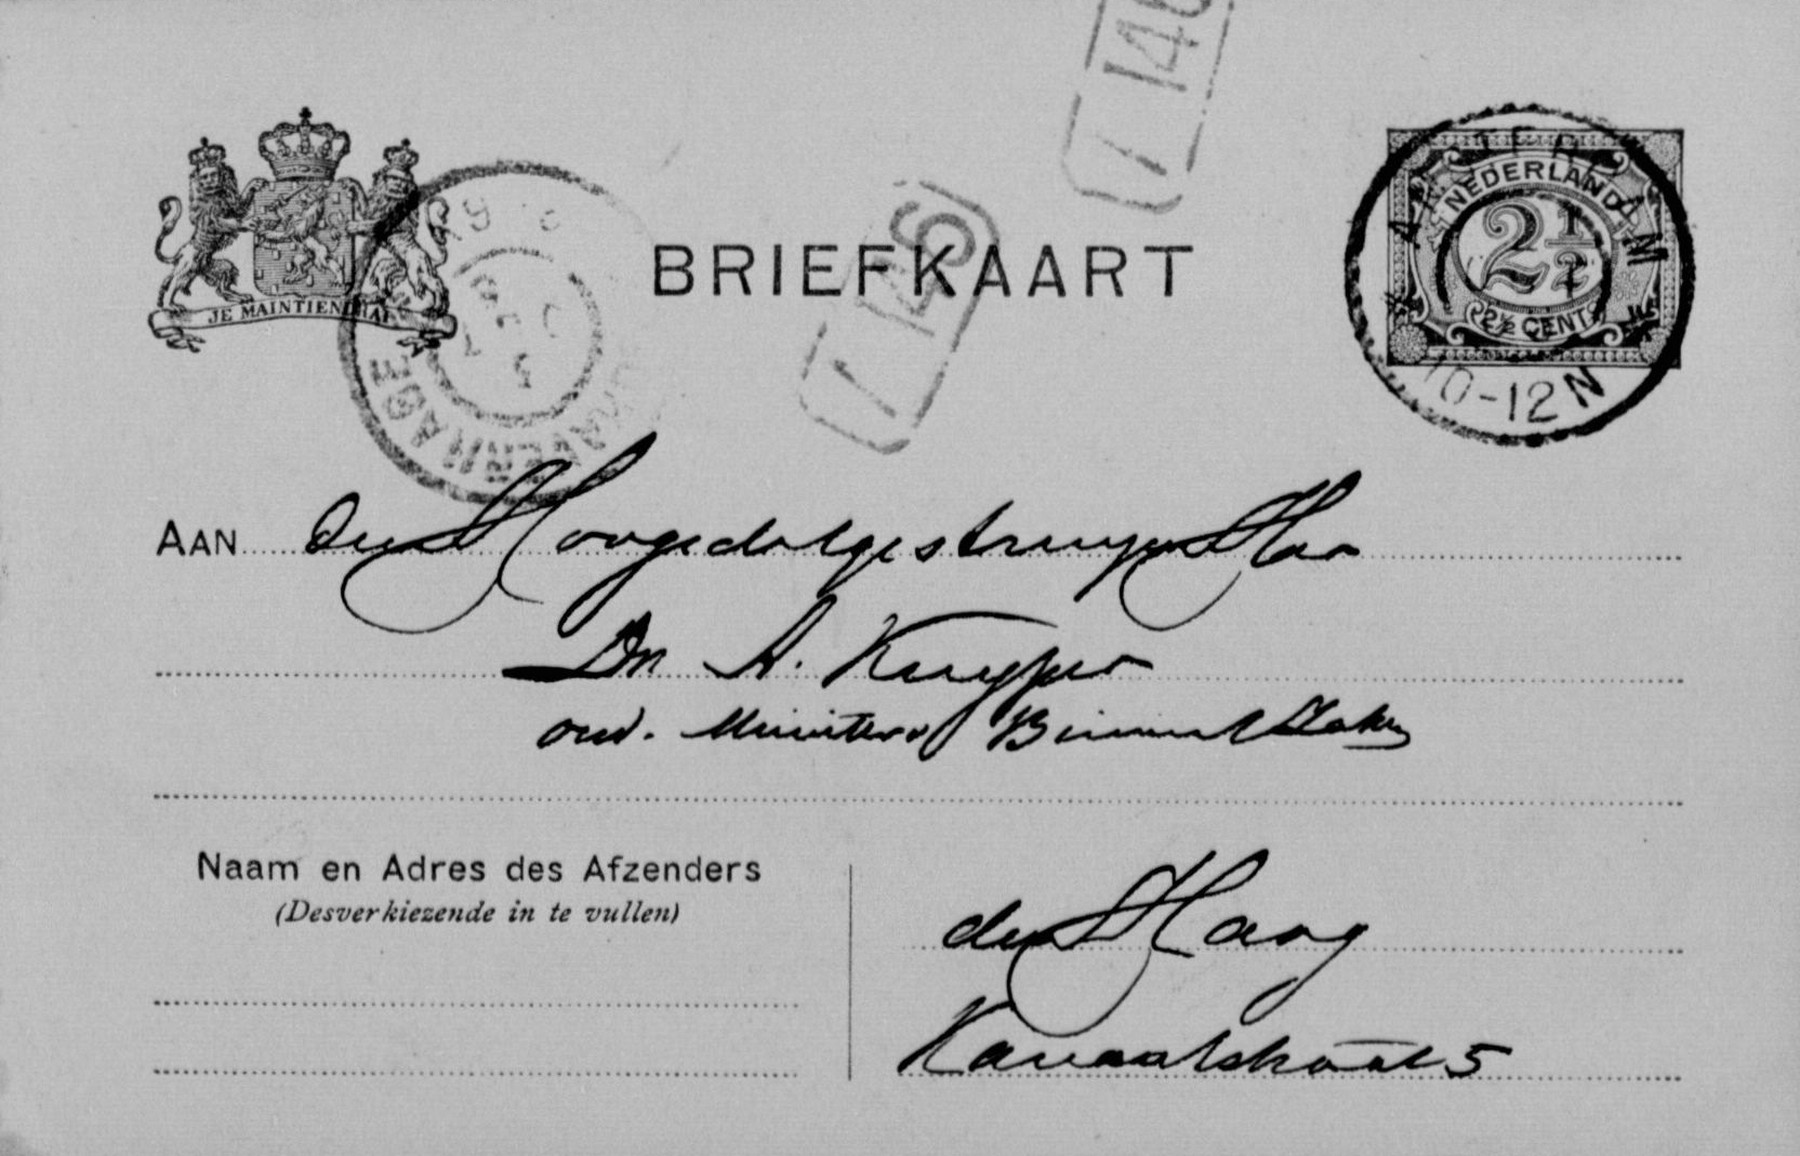 1 146
AMSTERDAM
NEDERLAND
2 1/2
2½ CENT
10-12 N
JE MAINTIENDRAI
BRIEFKAART
1 146
'S GRAVENHAGE
AAN den Hoogedelgestrengen Heer
Dr A. Kuyper
oud. Minister v Binnenl Zaken
Naam en Adres des Afzenders
(Desverkiezende in te vullen)
den Haag
Kanaalstraat 5